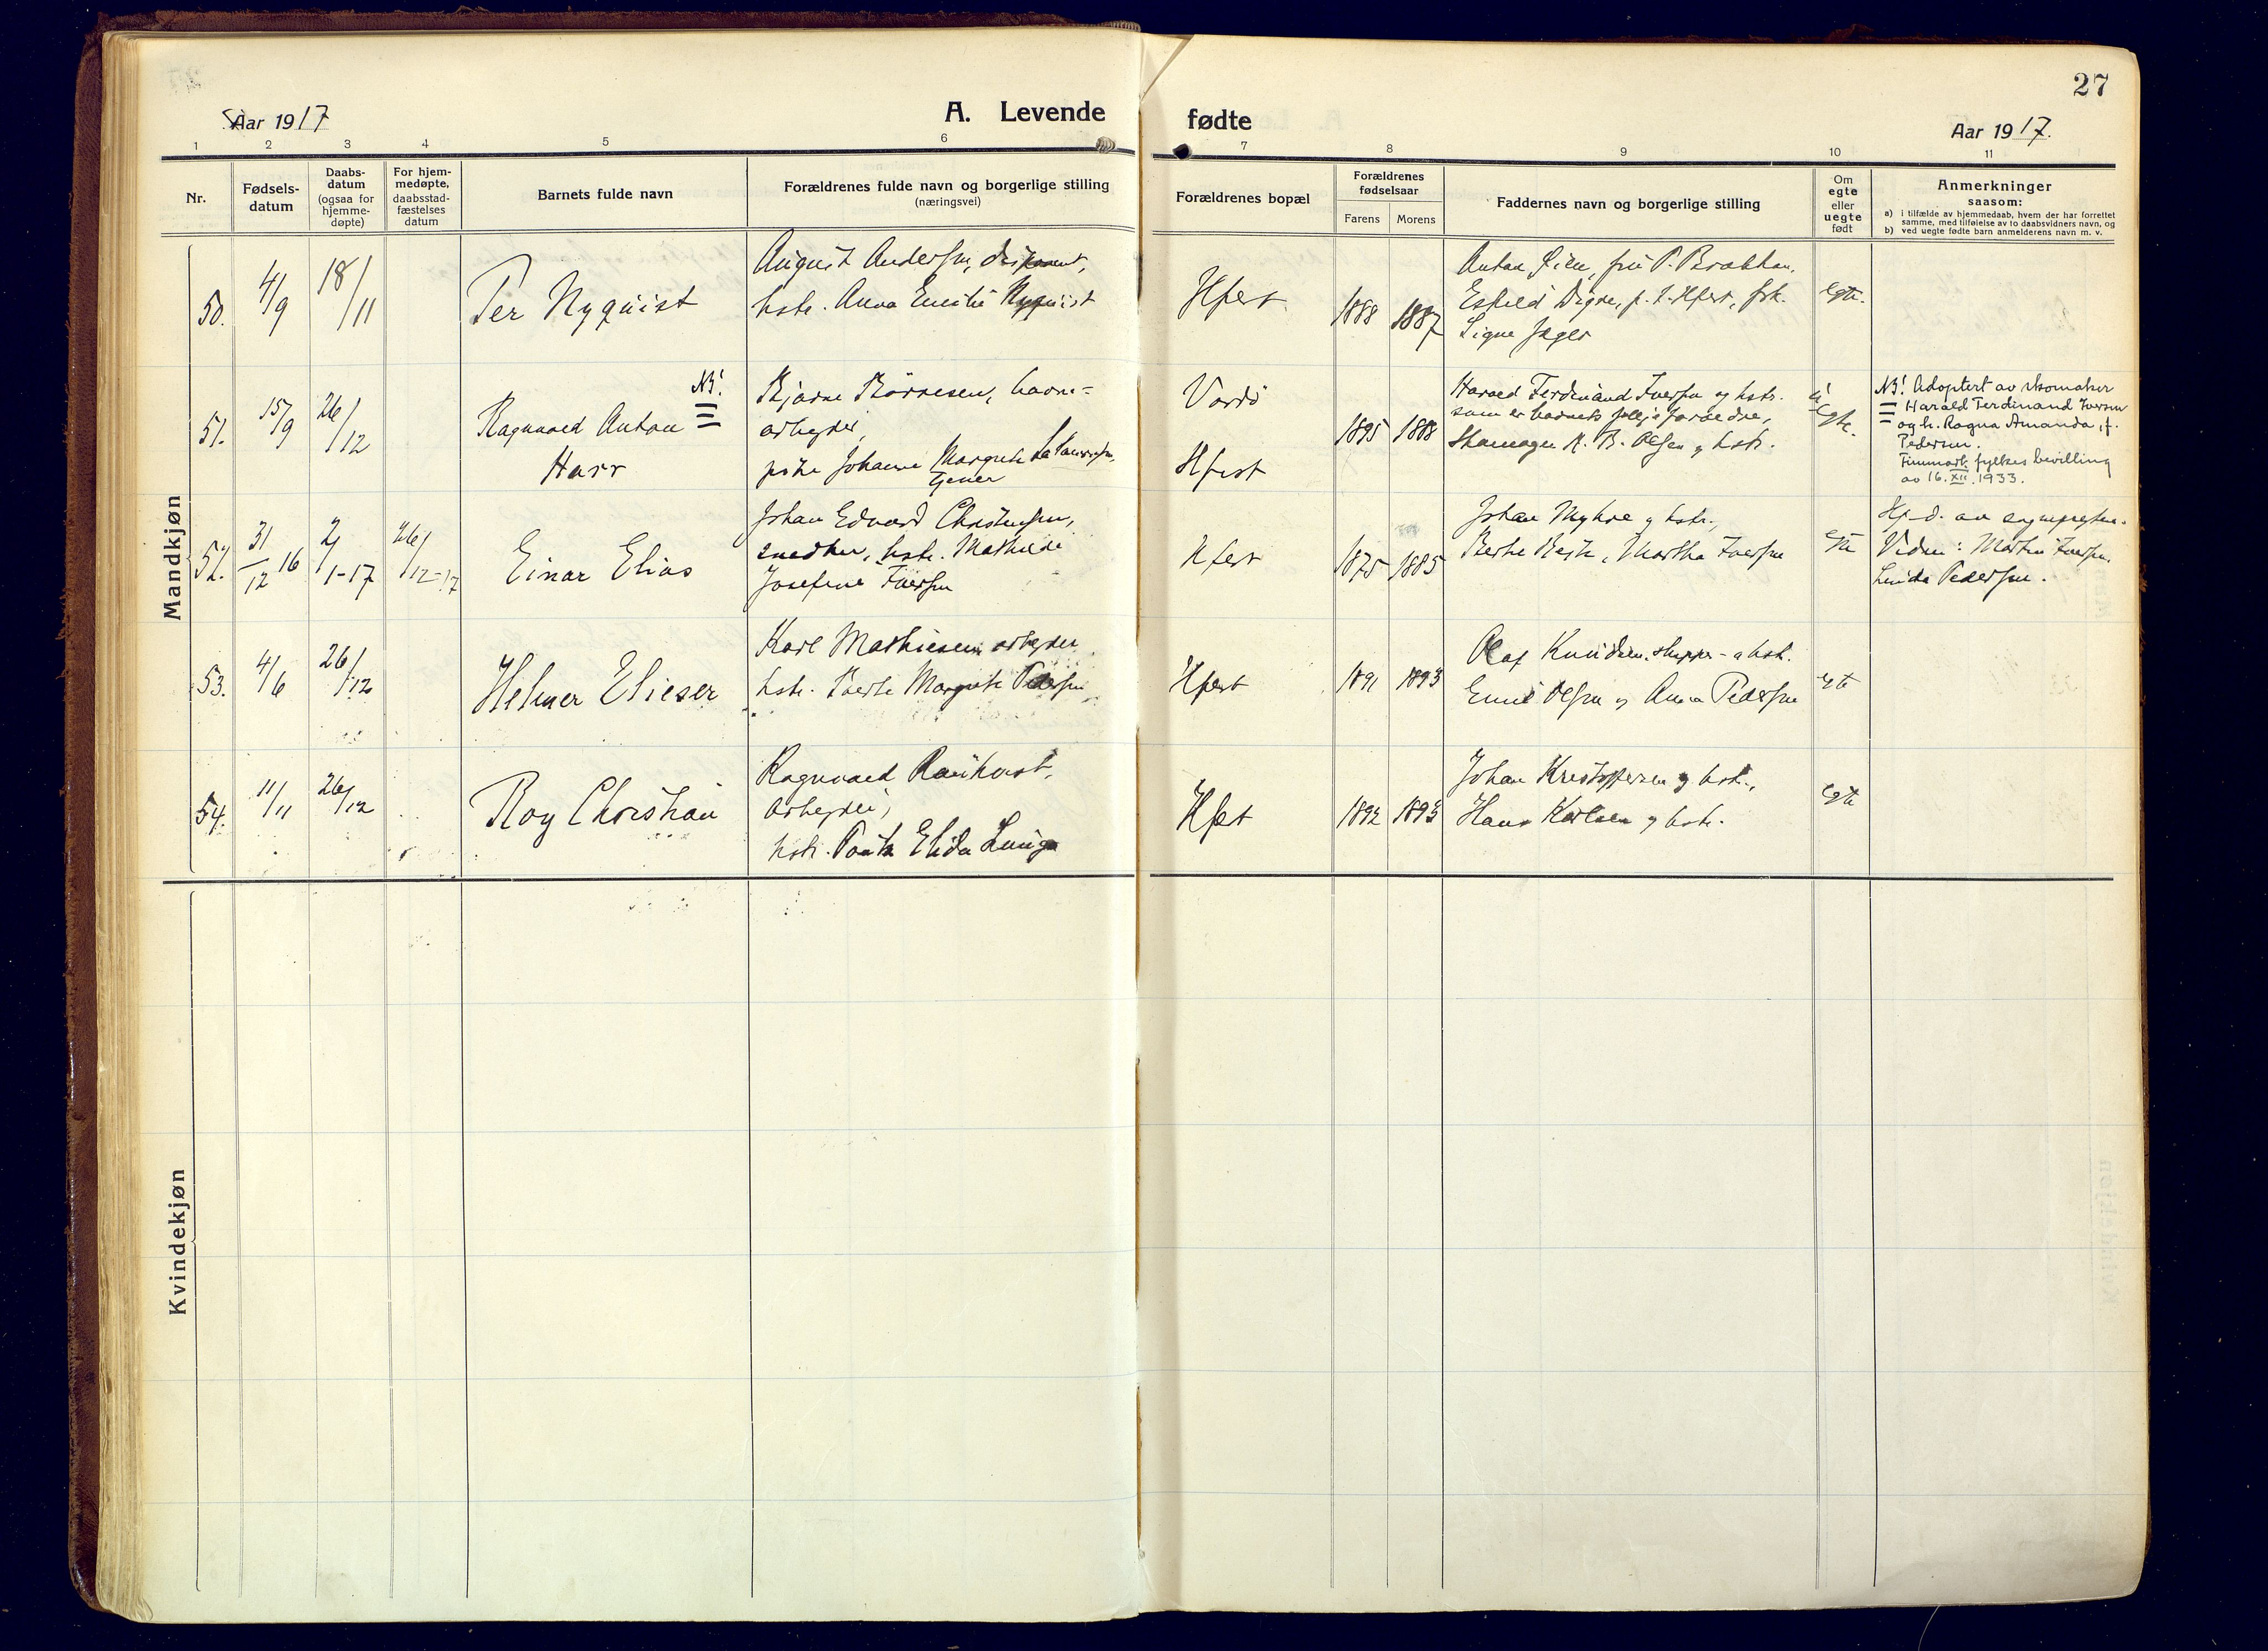 27
Aar 1917
A. Levende
fødte
Aar 1917.
1 2 3 4 5 6 7 8 9 10 11
Nr.
Fødsels-
datum
Daabs-
datum
(ogsaa for
hjemme-
døpte)
For hjem-
medøpte,
daabsstad-
fæstelses
datum
Barnets fulde navn
Forældrenes fulde navn og borgerlige stilling
(næringsvei)
Forældrenes bopæl
Forældrenes
fødselsaar
Farens Morens
Faddernes navn og borgerlige stilling
Om
egte
eller
uegte
født
Anmerkninger
saasom:
a) i tilfælde av hjemmedaab, hvem der har forrettet
samme, med tilføielse av to daabsvidners navn, og
b) ved uegte fødte barn anmelderens navn m. v.
Mandkjøn
50.
4/9
18/11
Per Nyquist
August Andersen, disponent,
hstr. Anna Emilie Nyquist
Hfest
1888 1887
Anton Øien, fru P. Brobakken,
Digre, p. t. Hfest, frk.
Signe Jæger
Egte.
51.
15/9
26/12
NB!
Ragnvald Anton
Harr
Bjarne Børresen, havne-
arbeyder,
pike Johanne Margrete
Vardö
Hfest
1895 1888
Harald Ferdinand Iversen og hstr.
som er barnets pleieforældre,
Skomager K. B. Olsen og hstr.
u
Egte.
NB! Adoptert av skomaker
Harald Ferdinand Iversen
og h. Ragna Amanda, f.
Pedersen.
Finnmark fylkes bevilling
av 16. XII. 1933.
52.
31/12 16
2/1-17
26/12-17
Einar Elias
Johan Edvard Christensen,
snedker, hstr. Mathilde
Josefine Iversen
Hfest
1875 1885
Johan Myhre og hstr.,
Berthe Martha Iversen
Egte
Hj-d. av sognepresten.
Vidner: Martin Iversen,
Linda Pedersen.
53.
4/6
26/12
Helmer Elieser
Karl Mathiesen arbeyder
hstr. Berte Margrete Pedersen
Hfest
1891 1893
Olaf Knudsen, skipper - og hst.
Emil Olsen og Anna Pedersen
Egte
54.
11/11
26/12
Roy Christian
Ragnvald
Arbeyder,
hstr. Elida
Hfest
1892 1893
Johan Kristoffersen og hst.,
Hans Karlsen og hstr.
Egte
Kvindekjøn